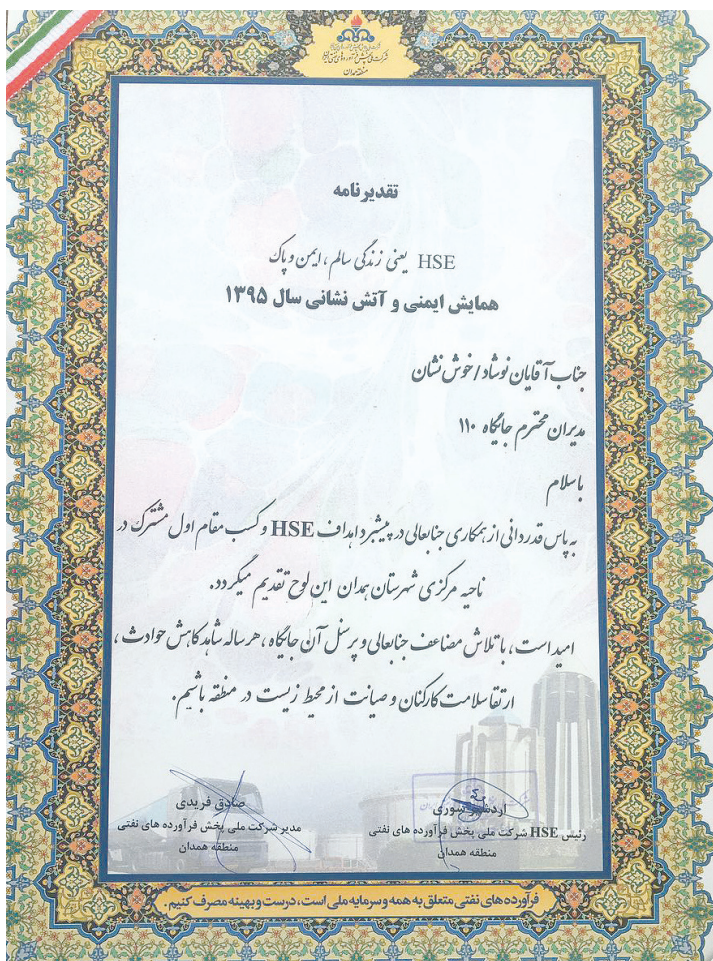 شرکت ملی پخش فرآورده های نفتی ایران
منطقه همدان
تقدیرنامه
HSE یعنی زندگی سالم، ایمن و پاک
همایش ایمنی و آتش نشانی سال ۱۳۹۵
جناب آقایان نوشاد / خوش نشان
مدیران محترم جایگاه ۱۱۰
باسلام
به پاس قدردانی از همکاری جنابعالی در پیشبرد اهداف HSE و کسب مقام اول مشترک در
ناحیه مرکزی شهرستان همدان این لوح تقدیم میگردد.
امید است، با تلاش مضاعف جنابعالی و پرسنل آن جایگاه، هرساله شاهد کاهش حوادث،
ارتقا سلامت کارکنان و صیانت از محیط زیست در منطقه باشیم.
صادق فریدی
مدیر شرکت ملی پخش فرآورده های نفتی
منطقه همدان
رئیس HSE شرکت ملی پخش فرآورده های نفتی
منطقه همدان
فرآورده های نفتی متعلق به همه و سرمایه ملی است، درست و بهینه مصرف کنیم.